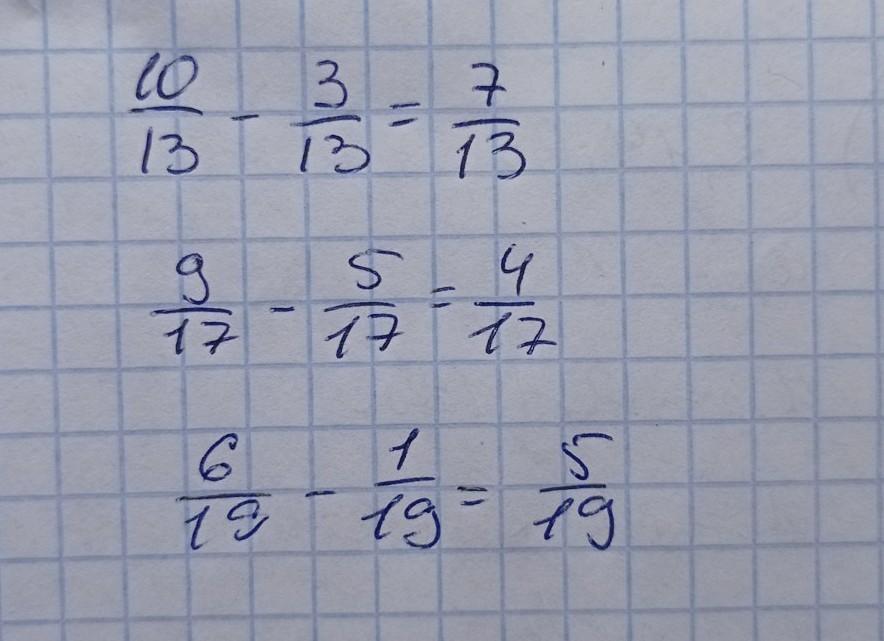 10/13 - 3/13 = 7/13
9/17 - 5/17 = 4/17
6/19 - 1/19 = 5/19